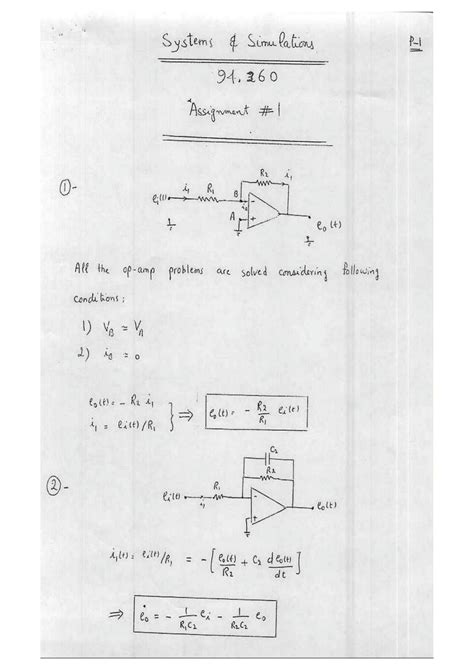 Systems & Simulations
P-1
94.260
Assignment #1
1-
e₁(t) i₁ R₁ B R2 i₁
A
e₀(t)
All the op-amp problems are solved considering following
conditions;
1) V_B ≃ V_A
2) i_B ≃ 0
e₀(t) = - R2 i₁
i₁ = ei(t)/R₁
⇒ e₀(t) = - R2/R₁ ei(t)
2-
C₂
R2
ei(t) i₁ R₁ e₀(t)
i₁(t) = ei(t)/R₁ = - [ e₀(t)/R₂ + C₂ de₀(t)/dt ]
⇒ ė₀ = - 1/R₁C₂ ei - 1/R₂C₂ e₀